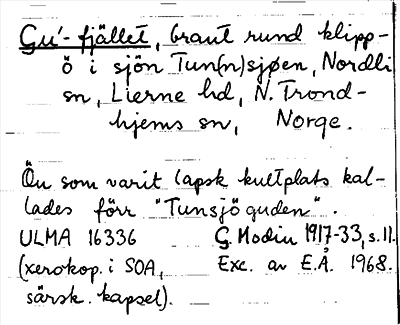 Gu'-fjället, brant rund klipp-
ö i sjön Tun(n)sjøen, Nordli
sn, Lierne hd, N. Trond-
hjems sn, Norge.
Ön som varit lapsk kultplats kal-
lades förr "Tunsjöguden".
ULMA 16336 G. Modin 1917-33, s. 11.
(xerokop. i SOA, Exc. av E.Å. 1968.
särsk. kapsel).